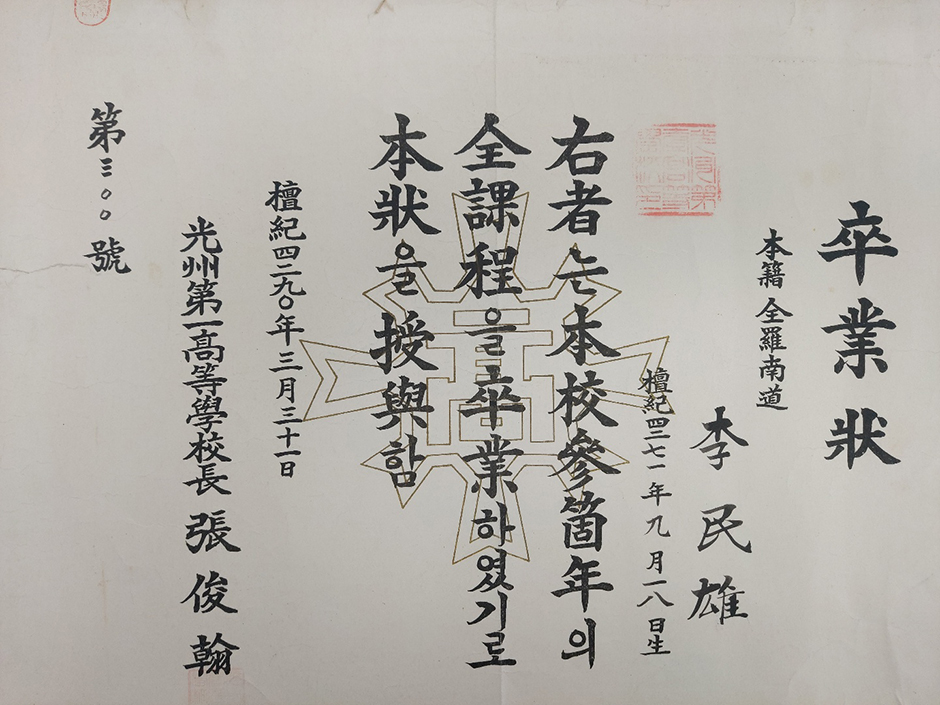 卒業狀
本籍 全羅南道
李民雄
檀紀四二七一年九月一八日生
右者는本校參箇年의
全課程을卒業하였기로
本狀을授與함
檀紀四二九〇年三月三十一日
光州第一高等學校長 張俊翰
第三〇〇號